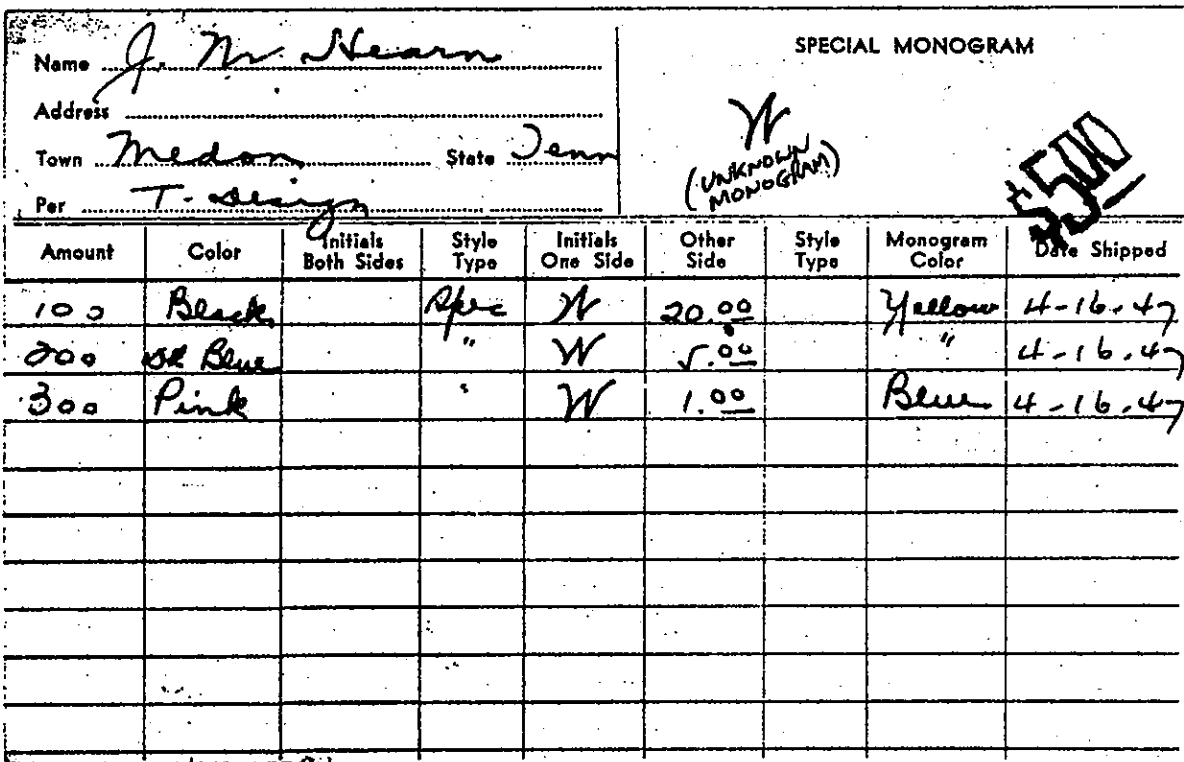 Name J. M. Hearn
Address
Town Medon State Tenn
Per T- design
SPECIAL MONOGRAM
W
(UNKNOWN MONOGRAM)
$500
Amount Color Initials Both Sides Style Type Initials One Side Other Side Style Type Monogram Color Date Shipped
100 Black Spec W 20.00 Yellow 4-16-47
200 DK Blue " W 5.00 " 4-16-47
300 Pink " W 1.00 Blue 4-16-47